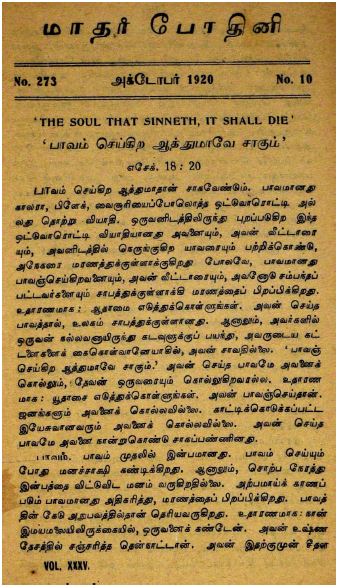 மாதர் போதினி
No. 273 அக்டோபர் 1920 No. 10
'THE SOUL THAT SINNETH, IT SHALL DIE'
'பாவம் செய்கிற ஆத்துமாவே சாகும்'
எசேக். 18 : 20
பாவம் செய்கிற ஆத்துமாதான் சாகவேண்டும். பாவமானது
காலரா, பிளேக், வைசூரியைப்போலொத்த ஒட்டுவாரொட்டி அல்
லது தொற்று வியாதி. ஒருவனிடத்திலிருந்து புறப்படுகிற இந்த
ஒட்டுவாரொட்டி வியாதியானது அவனையும், அவன் வீட்டாரை
யும், அவனிடத்தில் நெருங்குகிற யாவரையும் பற்றிக்கொண்டு,
அநேகரை மரணத்துக்குள்ளாக்குகிறது போலவே, பாவமானது
பாவஞ்செய்கிறவனையும், அவன் வீட்டாரையும், அவனோடு சம்பந்தப்
பட்டவர்களையும் சாபத்துக்குள்ளாக்கி மரணத்தைப் பிறப்பிக்கிறது.
உதாரணமாக : ஆதாமை எடுத்துக்கொள்ளுங்கள். அவன் செய்த
பாவத்தால், உலகம் சாபத்துக்குள்ளானது. ஆனாலும், அவர்களில்
ஒருவன் நல்லவனாயிருந்து கடவுளுக்குப் பயந்து, அவருடைய கட்
டளைகளைக் கைகொள்வானேயாகில், அவன் சாவதில்லை. 'பாவஞ்
செய்கிற ஆத்துமாவே சாகும்.' அவன் செய்த பாவமே அவனைக்
கொல்லும், தேவன் ஒருவரையும் கொல்லுகிறவரல்ல. உதாரண
மாக : யூதாசை எடுத்துக்கொள்ளுங்கள். அவன் பாவஞ்செய்தான்.
ஜனங்களும் அவனைக் கொல்லவில்லை. காட்டிக்கொடுக்கப்பட்ட
இயேசுவானவரும் அவனைக் கொல்லவில்லை. அவன் செய்த
பாவமே அவனை நான்றுகொண்டு சாகப்பண்ணினது.
பாவம், பாவம் முதலில் இன்பமானது. பாவம் செய்யும்
போது மனச்சாக்ஷி கண்டிக்கிறது. ஆனாலும், சொற்ப நேரத்து
இன்பத்தை விட்டுவிட மனம் வருகிறதில்லை. அற்பமாய்க் காணப்
படும் பாவமானது அதிகரித்து, மரணத்தைப் பிறப்பிக்கிறது. பாவத்
தின் கேடு அறுபவத்தில்தான் தெரியவருகிறது. உதாரணமாக : நான்
இமயமலையிலிருக்கையில், ஒருவனைக் கண்டேன். அவன் உஷ்ண
தேசத்தில் சஞ்சரித்த தென்னாட்டான். அவன் இதற்குமுன் சீதள
VOL. XXXV.